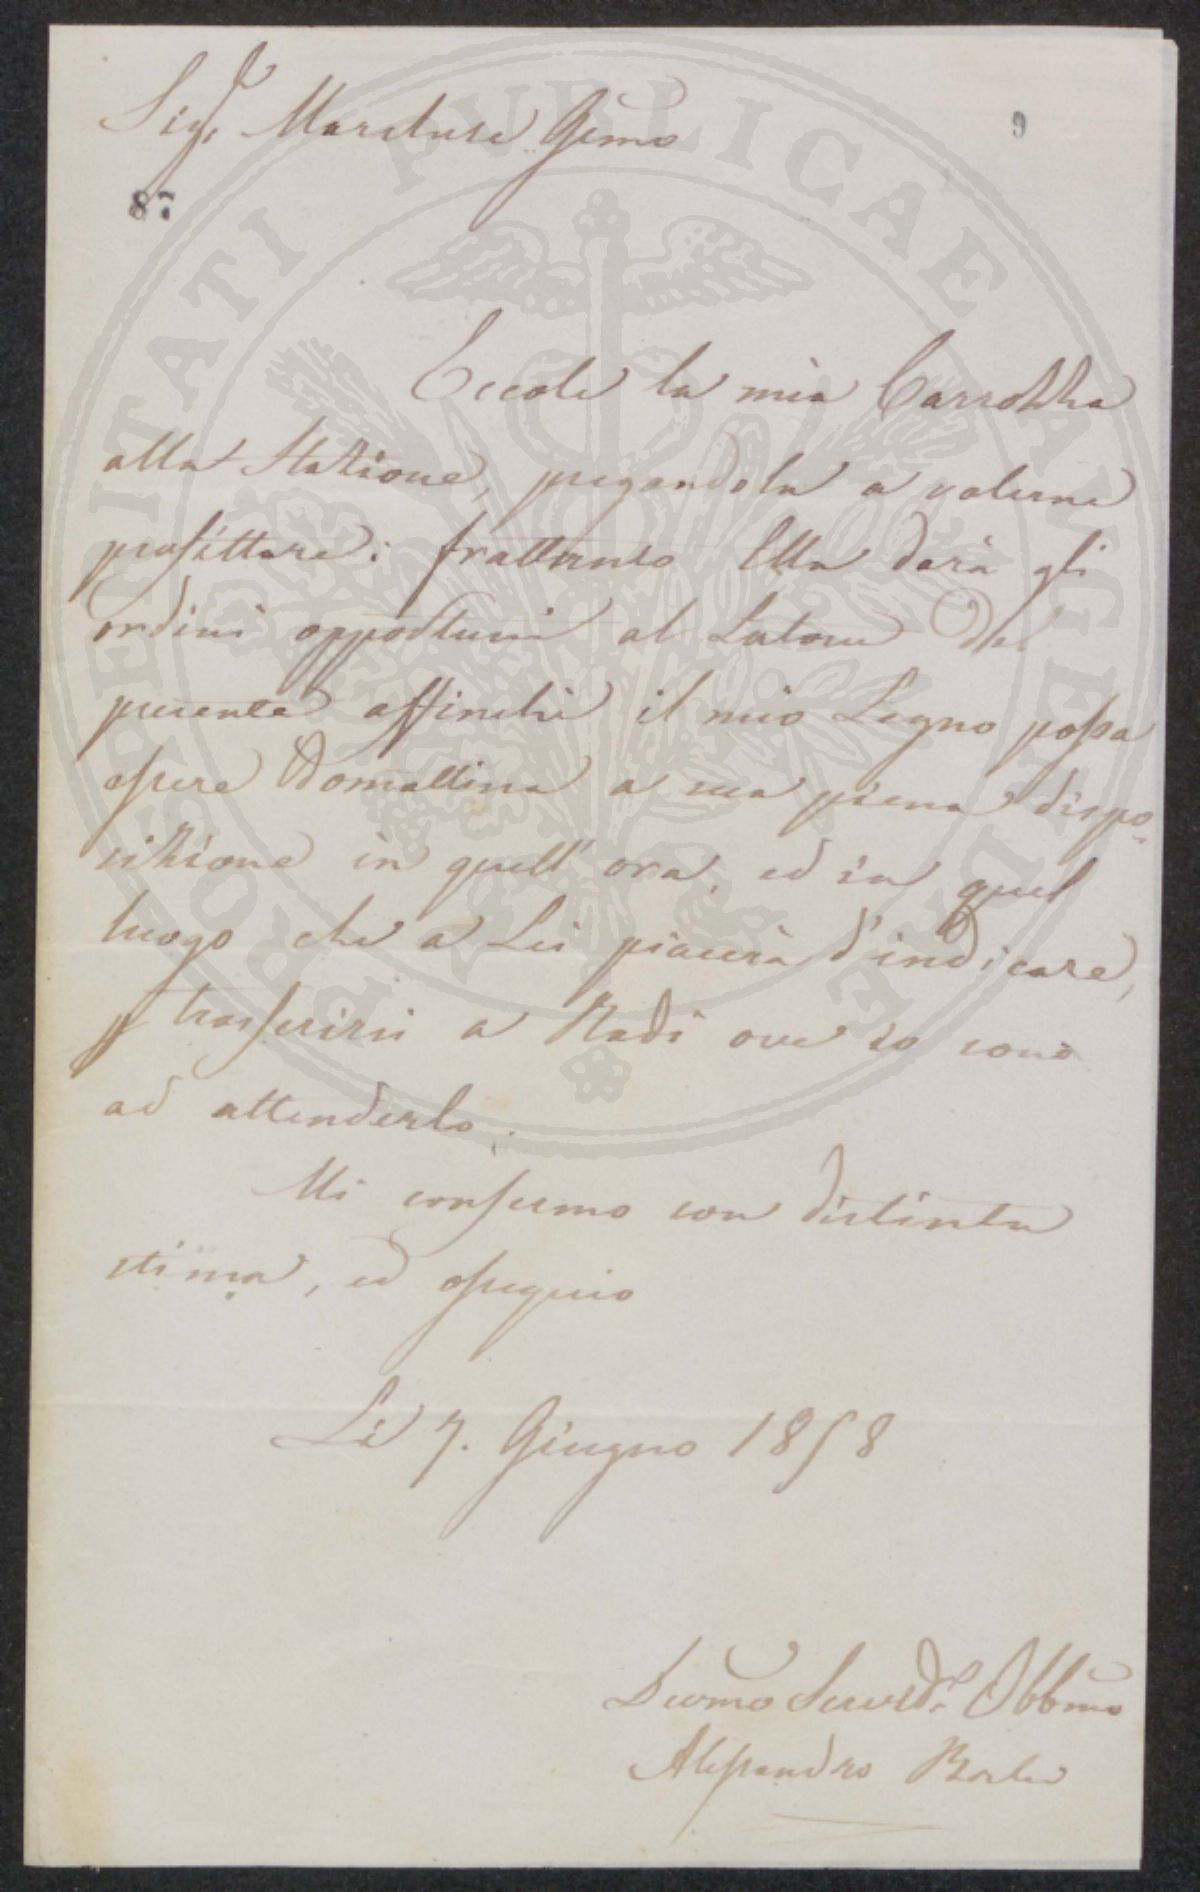 Sig.r Marchese Gemo
9
87
Eccole la mia Carrozza
alla Stazione, pregandola a volerne
profittare: frattanto Ella darà gli
ordini opportuni al Latore del
presente affinchè il mio Legno possa
essere domattina a sua piena dispo-
sizione in quell' ora, ed in quel
luogo che a Lei piacerà d'indicare,
p trasferirsi a Radi ove io sono
ad attenderlo.
Mi confermo con distinta
stima, ed ossequio
Li 7. Giugno 1858
Devmo Servid.e Obbmo
Alessandro
PROSPERITATI PUBLICAE AUGENDAE